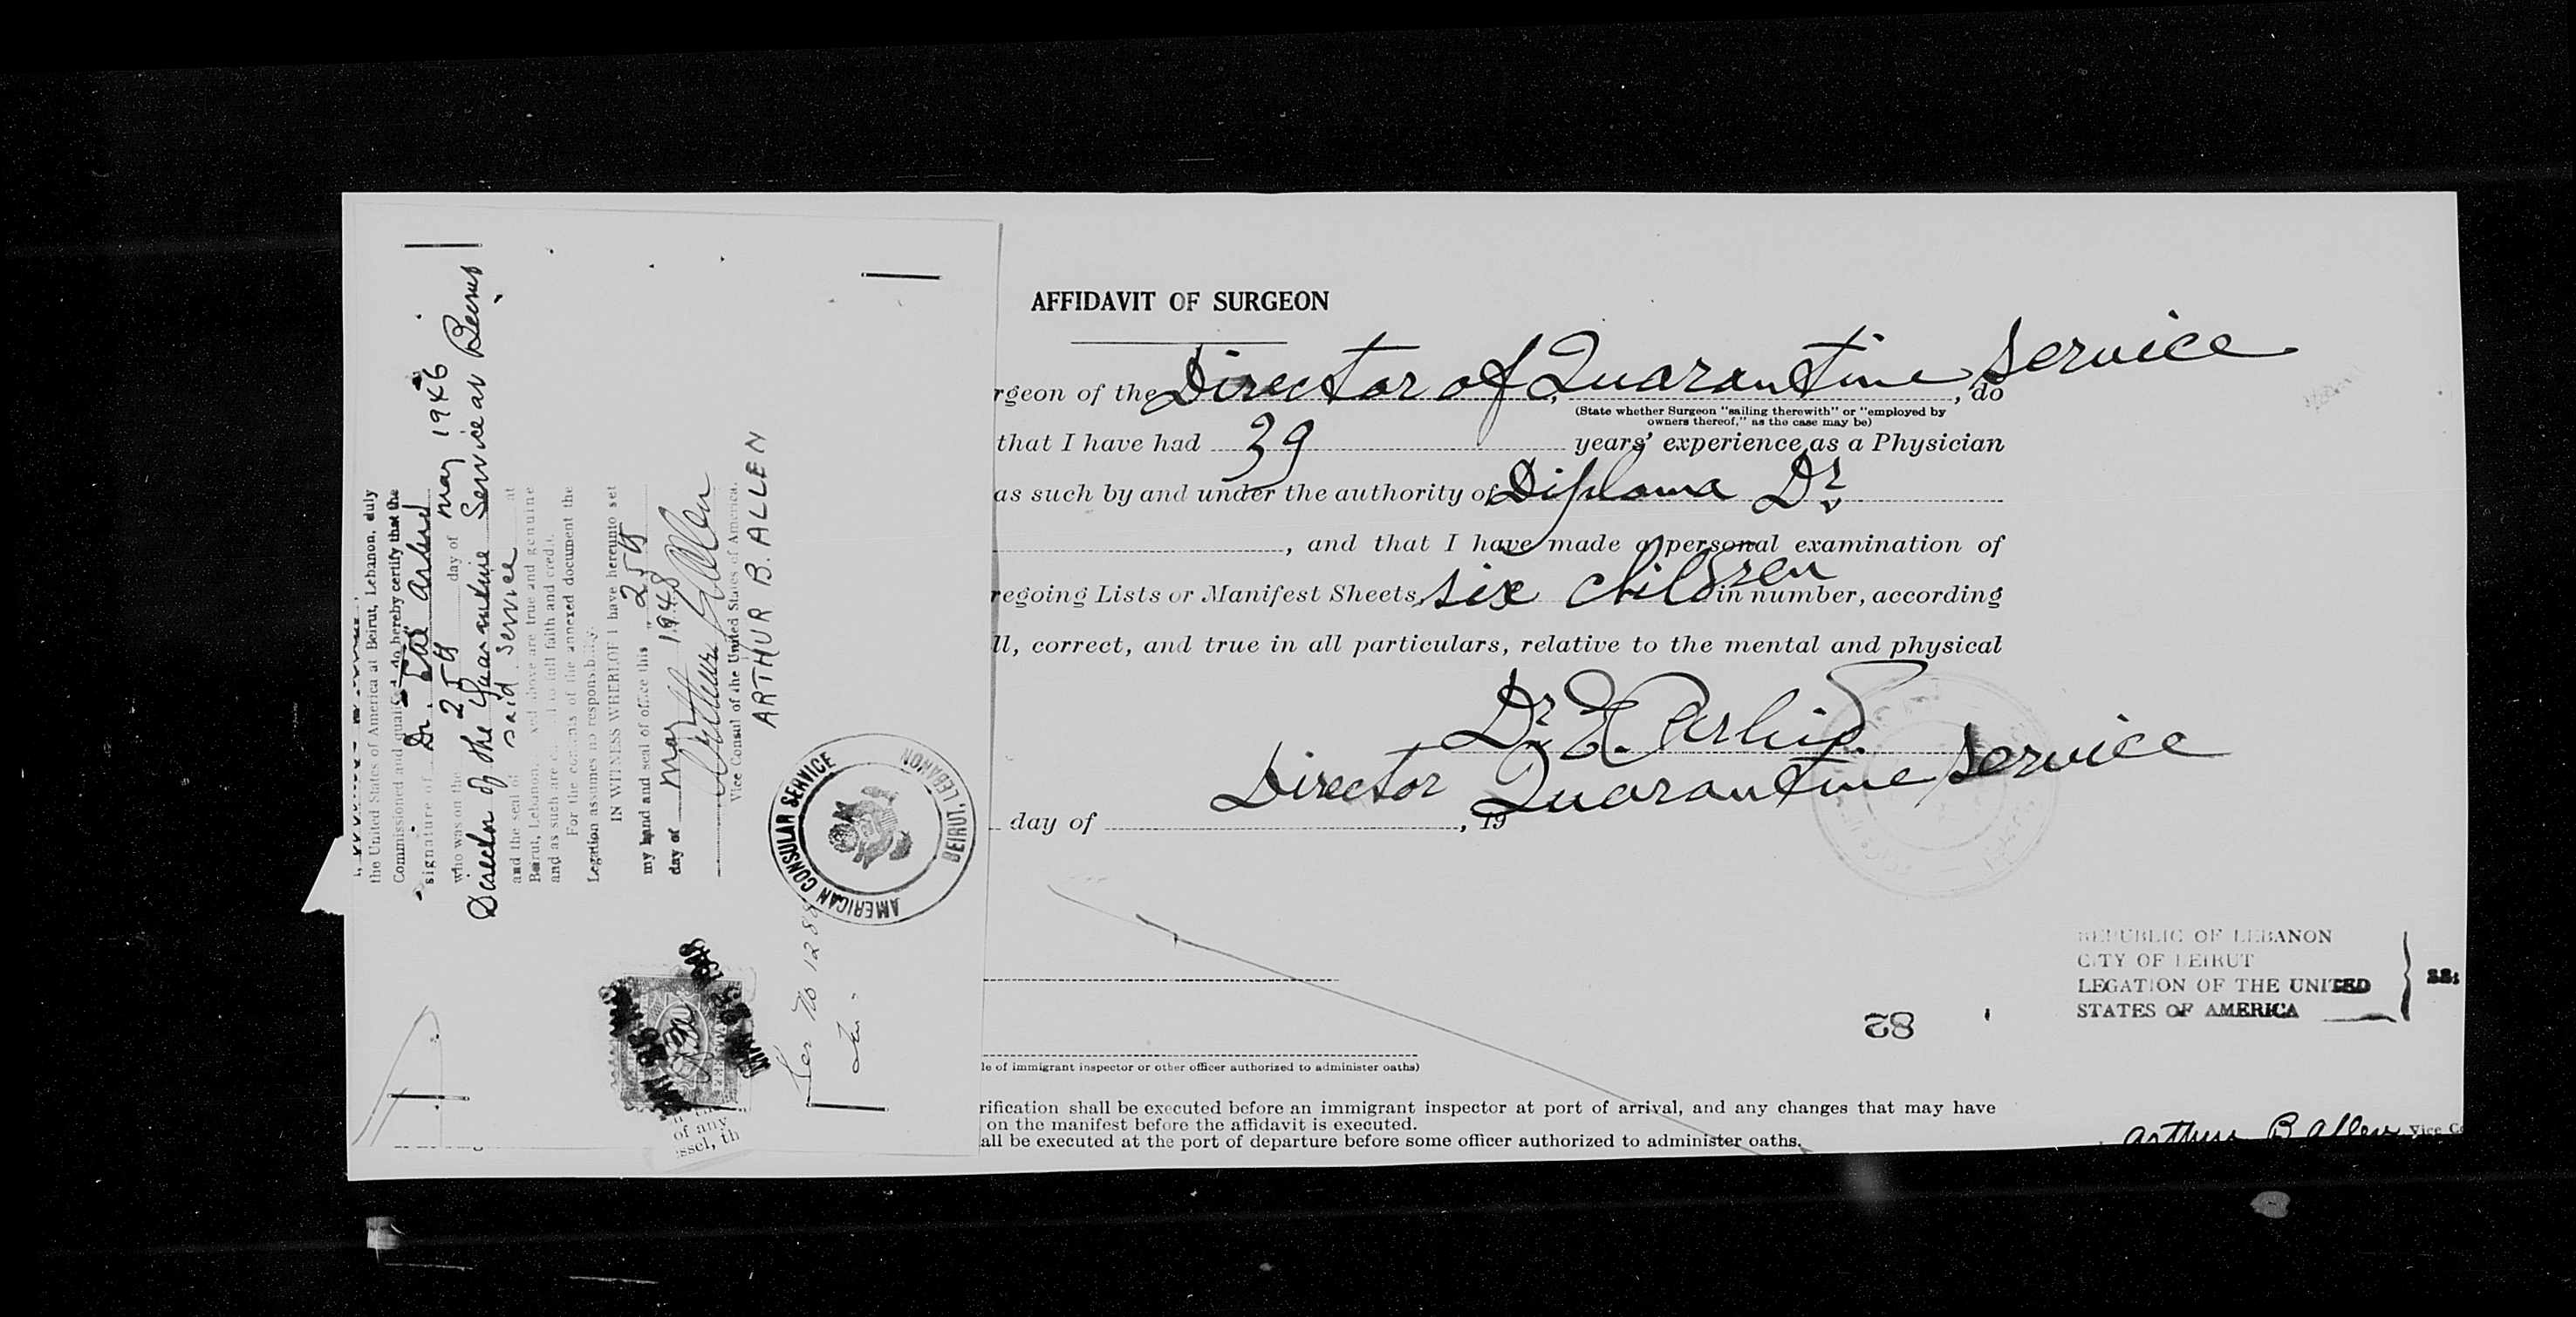 AFFIDAVIT OF SURGEON
rgeon of the Director of Quarantine Service, do
(State whether Surgeon "sailing therewith" or "employed by
owners thereof," as the case may be)
that I have had 39 years' experience as a Physician
as such by and under the authority of Diploma Dr
, and that I have made a personal examination of
regoing Lists or Manifest Sheets, six children in number, according
ll, correct, and true in all particulars, relative to the mental and physical
Dr E.
Director Quarantine Service
day of , 19
REPUBLIC OF LEBANON
CITY OF BEIRUT
LEGATION OF THE UNITED
STATES OF AMERICA
ss:
82
le of immigrant inspector or other officer authorized to administer oaths)
rification shall be executed before an immigrant inspector at port of arrival, and any changes that may have
on the manifest before the affidavit is executed.
all be executed at the port of departure before some officer authorized to administer oaths.
Arthur B Allen Vice Co
the United States of America at Beirut, Lebanon, duly
Commissioned and qualified do hereby certify that the
signature of Dr.
who was on the 25th day of May 1946
Director of the Quarantine Service at Beirut
and the seal of said service at
Beirut, Lebanon, xed above are true and genuine
and as such are e to full faith and credit.
For the contents of the annexed document the
Legation assumes no responsibility.
IN WITNESS WHEREOF I have hereunto set
my hand and seal of office this 25th
day of May 1946
Arthur B Allen
Vice Consul of the United States of America.
ARTHUR B. ALLEN
AMERICAN CONSULAR SERVICE
BEIRUT, LEBANON
Ser No 128
of any
ssel, th